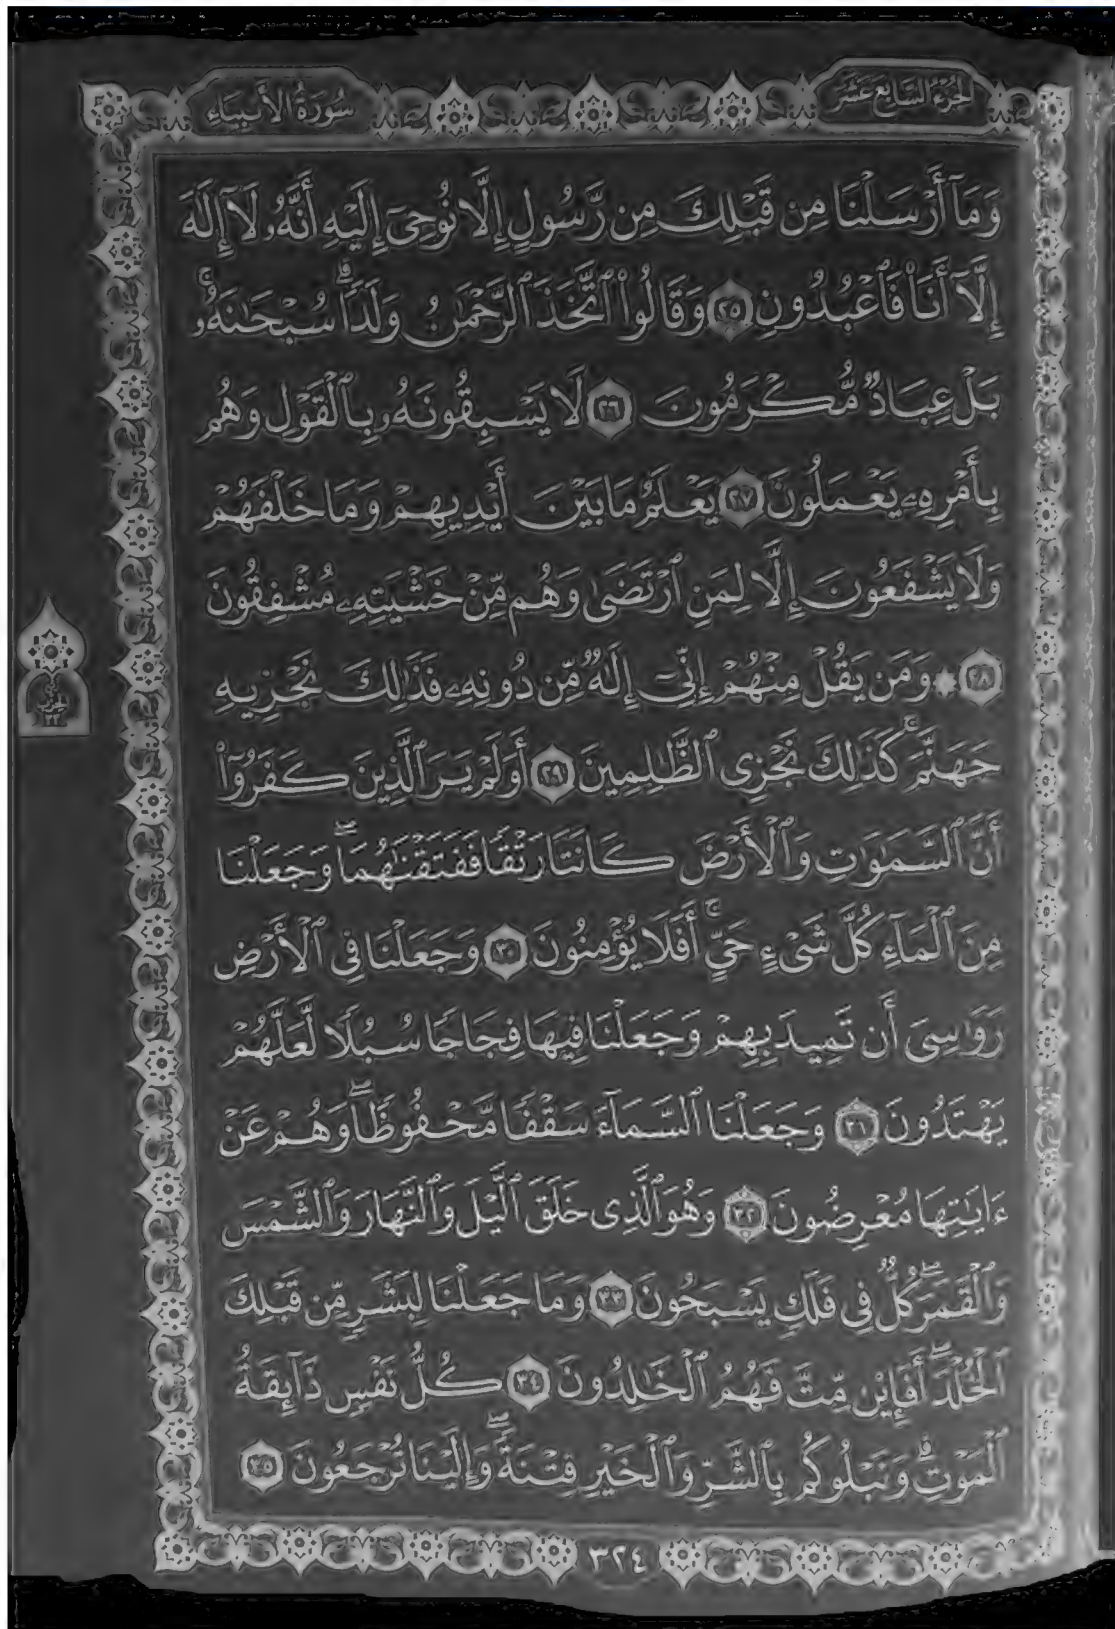 الجزء السابع عشر
سورة الأنبياء
وَمَآ أَرۡسَلۡنَا مِن قَبۡلِكَ مِن رَّسُولٍ إِلَّا نُوحِيٓ إِلَيۡهِ أَنَّهُۥ لَآ إِلَٰهَ
إِلَّآ أَنَا۠ فَٱعۡبُدُونِ ٢٥ وَقَالُواْ ٱتَّخَذَ ٱلرَّحۡمَٰنُ وَلَدٗاۗ سُبۡحَٰنَهُۥۚ
بَلۡ عِبَادٞ مُّكۡرَمُونَ ٢٦ لَا يَسۡبِقُونَهُۥ بِٱلۡقَوۡلِ وَهُم
بِأَمۡرِهِۦ يَعۡمَلُونَ ٢٧ يَعۡلَمُ مَا بَيۡنَ أَيۡدِيهِمۡ وَمَا خَلۡفَهُمۡ
وَلَا يَشۡفَعُونَ إِلَّا لِمَنِ ٱرۡتَضَىٰ وَهُم مِّنۡ خَشۡيَتِهِۦ مُشۡفِقُونَ
٢٨ ۞ وَمَن يَقُلۡ مِنۡهُمۡ إِنِّيٓ إِلَٰهٞ مِّن دُونِهِۦ فَذَٰلِكَ نَجۡزِيهِ
جَهَنَّمَۚ كَذَٰلِكَ نَجۡزِي ٱلظَّٰلِمِينَ ٢٩ أَوَلَمۡ يَرَ ٱلَّذِينَ كَفَرُوٓاْ
أَنَّ ٱلسَّمَٰوَٰتِ وَٱلۡأَرۡضَ كَانَتَا رَتۡقٗا فَفَتَقۡنَٰهُمَاۖ وَجَعَلۡنَا
مِنَ ٱلۡمَآءِ كُلَّ شَيۡءٍ حَيٍّۚ أَفَلَا يُؤۡمِنُونَ ٣٠ وَجَعَلۡنَا فِي ٱلۡأَرۡضِ
رَوَٰسِيَ أَن تَمِيدَ بِهِمۡ وَجَعَلۡنَا فِيهَا فِجَاجٗا سُبُلٗا لَّعَلَّهُمۡ
يَهۡتَدُونَ ٣١ وَجَعَلۡنَا ٱلسَّمَآءَ سَقۡفٗا مَّحۡفُوظٗاۖ وَهُمۡ عَنۡ
ءَايَٰتِهَا مُعۡرِضُونَ ٣٢ وَهُوَ ٱلَّذِي خَلَقَ ٱلَّيۡلَ وَٱلنَّهَارَ وَٱلشَّمۡسَ
وَٱلۡقَمَرَۖ كُلّٞ فِي فَلَكٖ يَسۡبَحُونَ ٣٣ وَمَا جَعَلۡنَا لِبَشَرٖ مِّن قَبۡلِكَ
ٱلۡخُلۡدَۖ أَفَإِيْن مِّتَّ فَهُمُ ٱلۡخَٰلِدُونَ ٣٤ كُلُّ نَفۡسٖ ذَآئِقَةُ
ٱلۡمَوۡتِۗ وَنَبۡلُوكُم بِٱلشَّرِّ وَٱلۡخَيۡرِ فِتۡنَةٗۖ وَإِلَيۡنَا تُرۡجَعُونَ ٣٥
٣٢٤